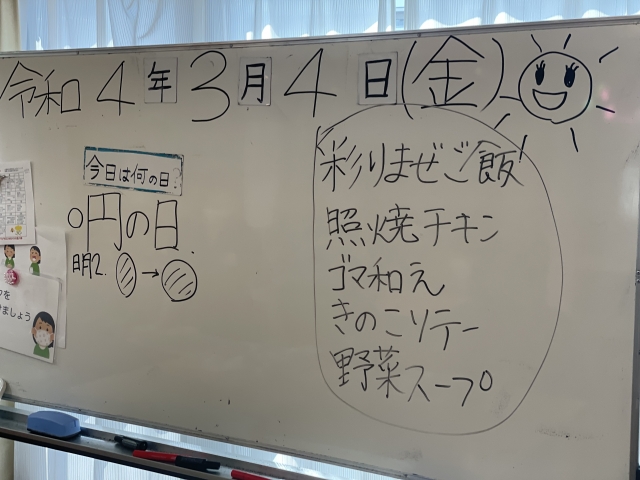 令和4年3月4日(金)
今日は何の日
○円の日
明2. →
彩りまぜご飯
照焼チキン
ゴマ和え
きのこソテー
野菜スープ
を
けましょう